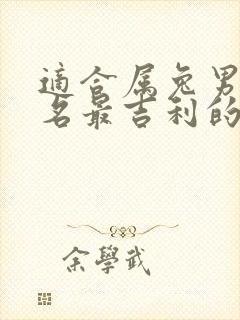 適合属兔男
名最吉利的
余學武